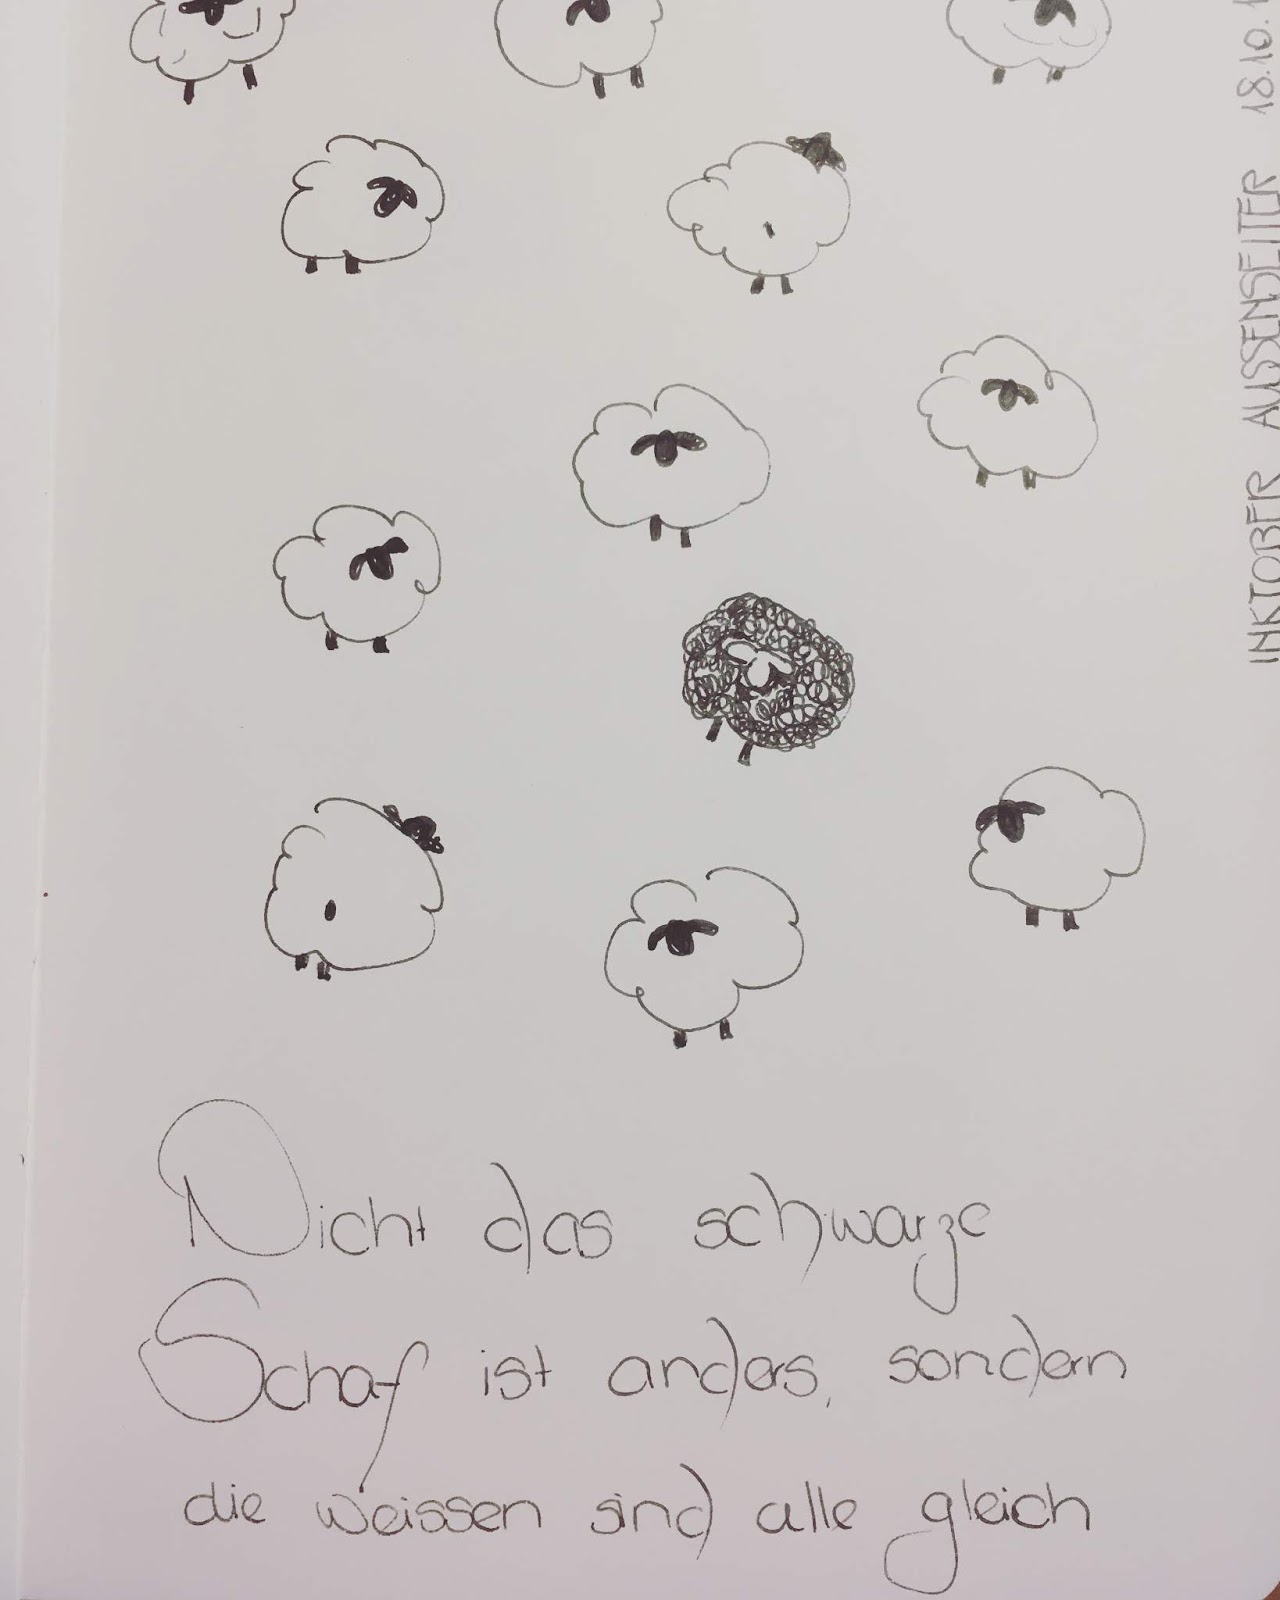 INKTOBER AUSSENSEITER 18.10.
Nicht das schwarze
Schaf ist anders, sondern
die weissen sind alle gleich